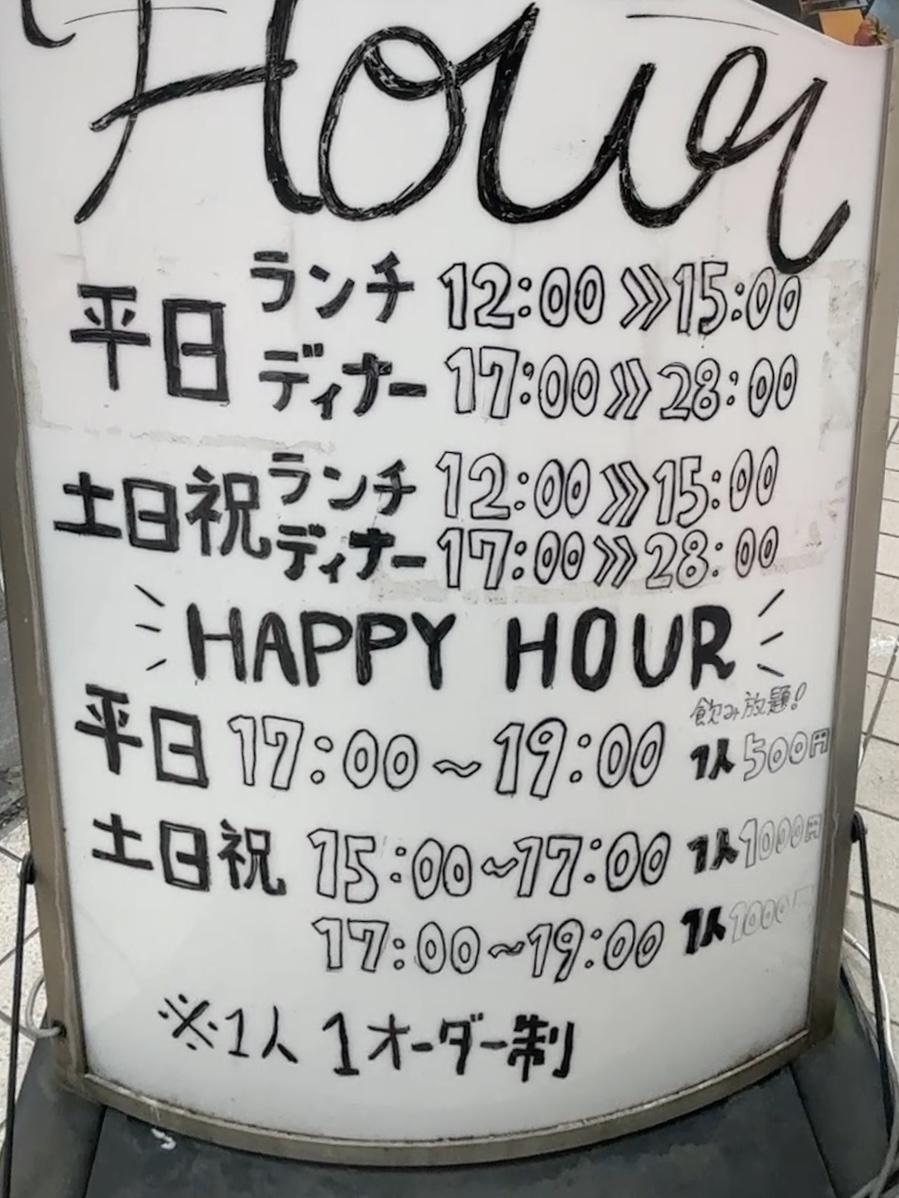 Hour
平日 ランチ 12:00 》15:00
ディナー 17:00 》28:00
土日祝 ランチ 12:00 》15:00
ディナー 17:00 》28:00
HAPPY HOUR
飲み放題!
平日 17:00~19:00 1人500円
土日祝 15:00~17:00 1人1000円
17:00~19:00 1人1000円
※1人 1オーダー制